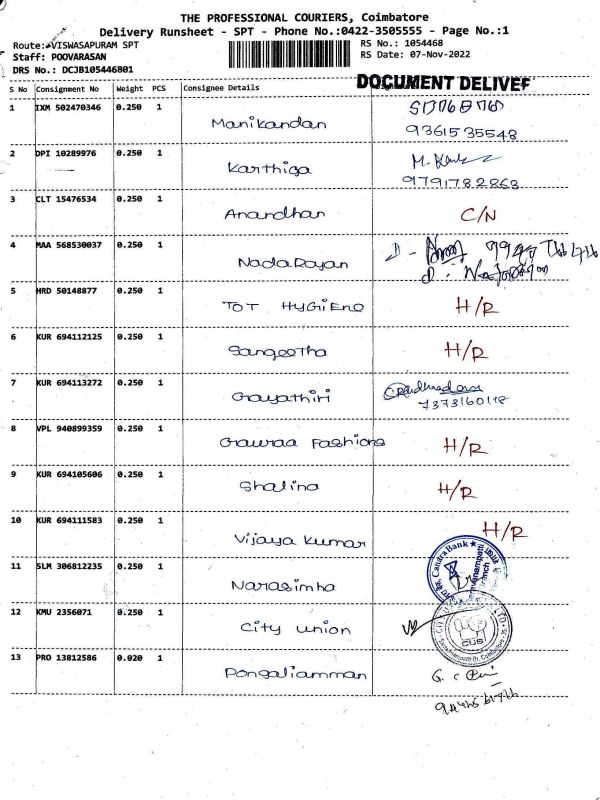 THE PROFESSIONAL COURIERS, Coimbatore
Delivery Runsheet - SPT - Phone No.:0422-3505555 - Page No.:1
Route: VISWASAPURAM SPT
RS No.: 1054468
Staff: POOVARASAN
RS Date: 07-Nov-2022
DRS No.: DCJB105446801
DOCUMENT DELIVE
S No Consignment No Weight PCS Consignee Details
1 IXM 502470346 0.250 1 Manikandan
9361535548
2 DPI 10289976 0.250 1 Karthiga
9791782868
3 CLT 15476534 0.250 1 Anandhan C/N
4 MAA 568530037 0.250 1 NadaRajan
5 HRD 50148877 0.250 1 TOT HYGIENE H/R
6 KUR 694112125 0.250 1 Sangeetha H/R
7 KUR 694113272 0.250 1 Gayathiri
7373160118
8 VPL 940899359 0.250 1 Gawraa Fashions H/R
9 KUR 694105606 0.250 1 Shalina H/R
10 KUR 694111583 0.250 1 Vijaya Kumar H/R
Canara Bank
11 SLM 306812235 0.250 1 Narasimha
12 KMU 2356071 0.250 1 City Union
CUB
13 PRO 13812586 0.020 1 Pongaliamman